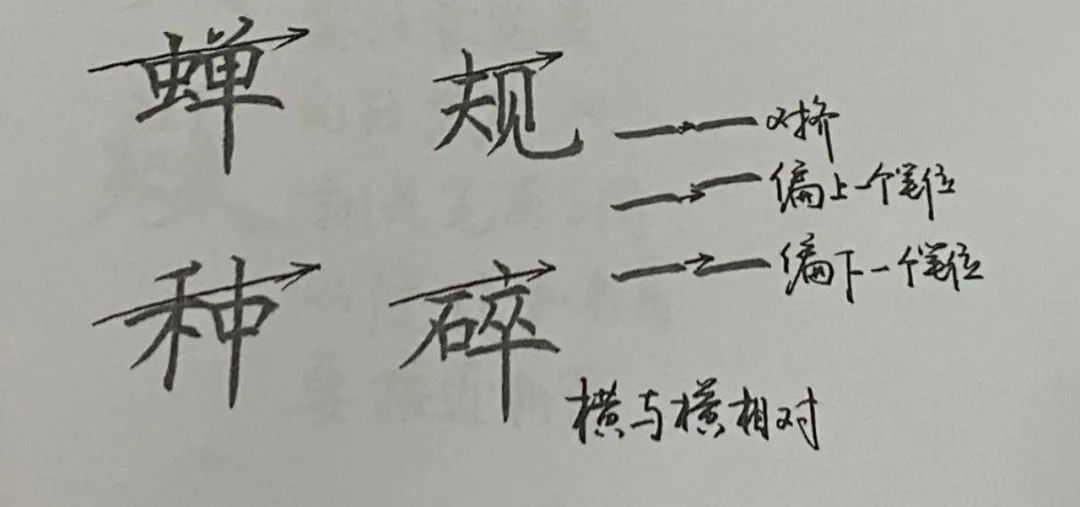 蝉 规
对挤
偏上一个笔位
偏下一个笔位
种 碎
横与横相对